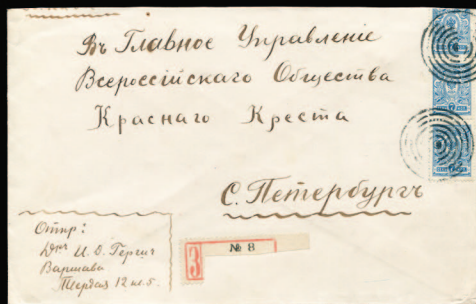 Въ Главное Управленіе
Всероссійскаго Общества
Краснаго Креста
С. Петербургъ
Отпр:
И. О. Гергич
Варшава
Твердая 12 кв. 5.
№ 8
З
7 7